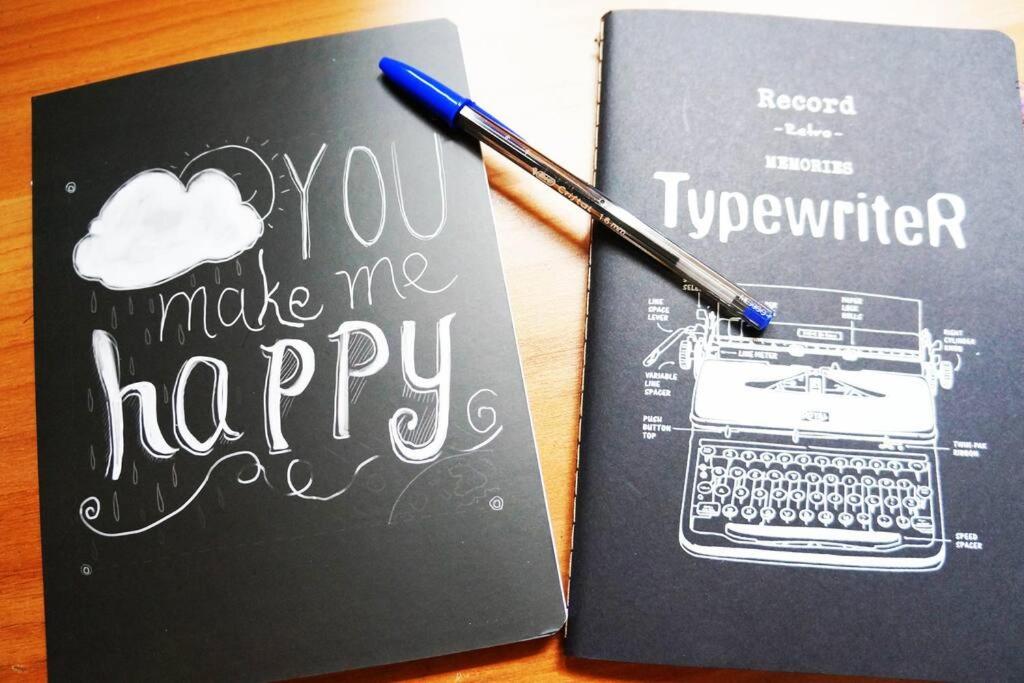 YOU
make me
happy
Cristal 1.6mm
Record
-Retro-
MEMORIES
TypewriteR
LINE
SPACE
LEVER
PAPER
LOCK
ROLLS
RIGHT
CYLINDER
KNOB
LINE METER
VARIABLE
LINE
SPACER
PUSH
BUTTON
TOP
TWIN-PAK
RIBBON
SPEED
SPACER